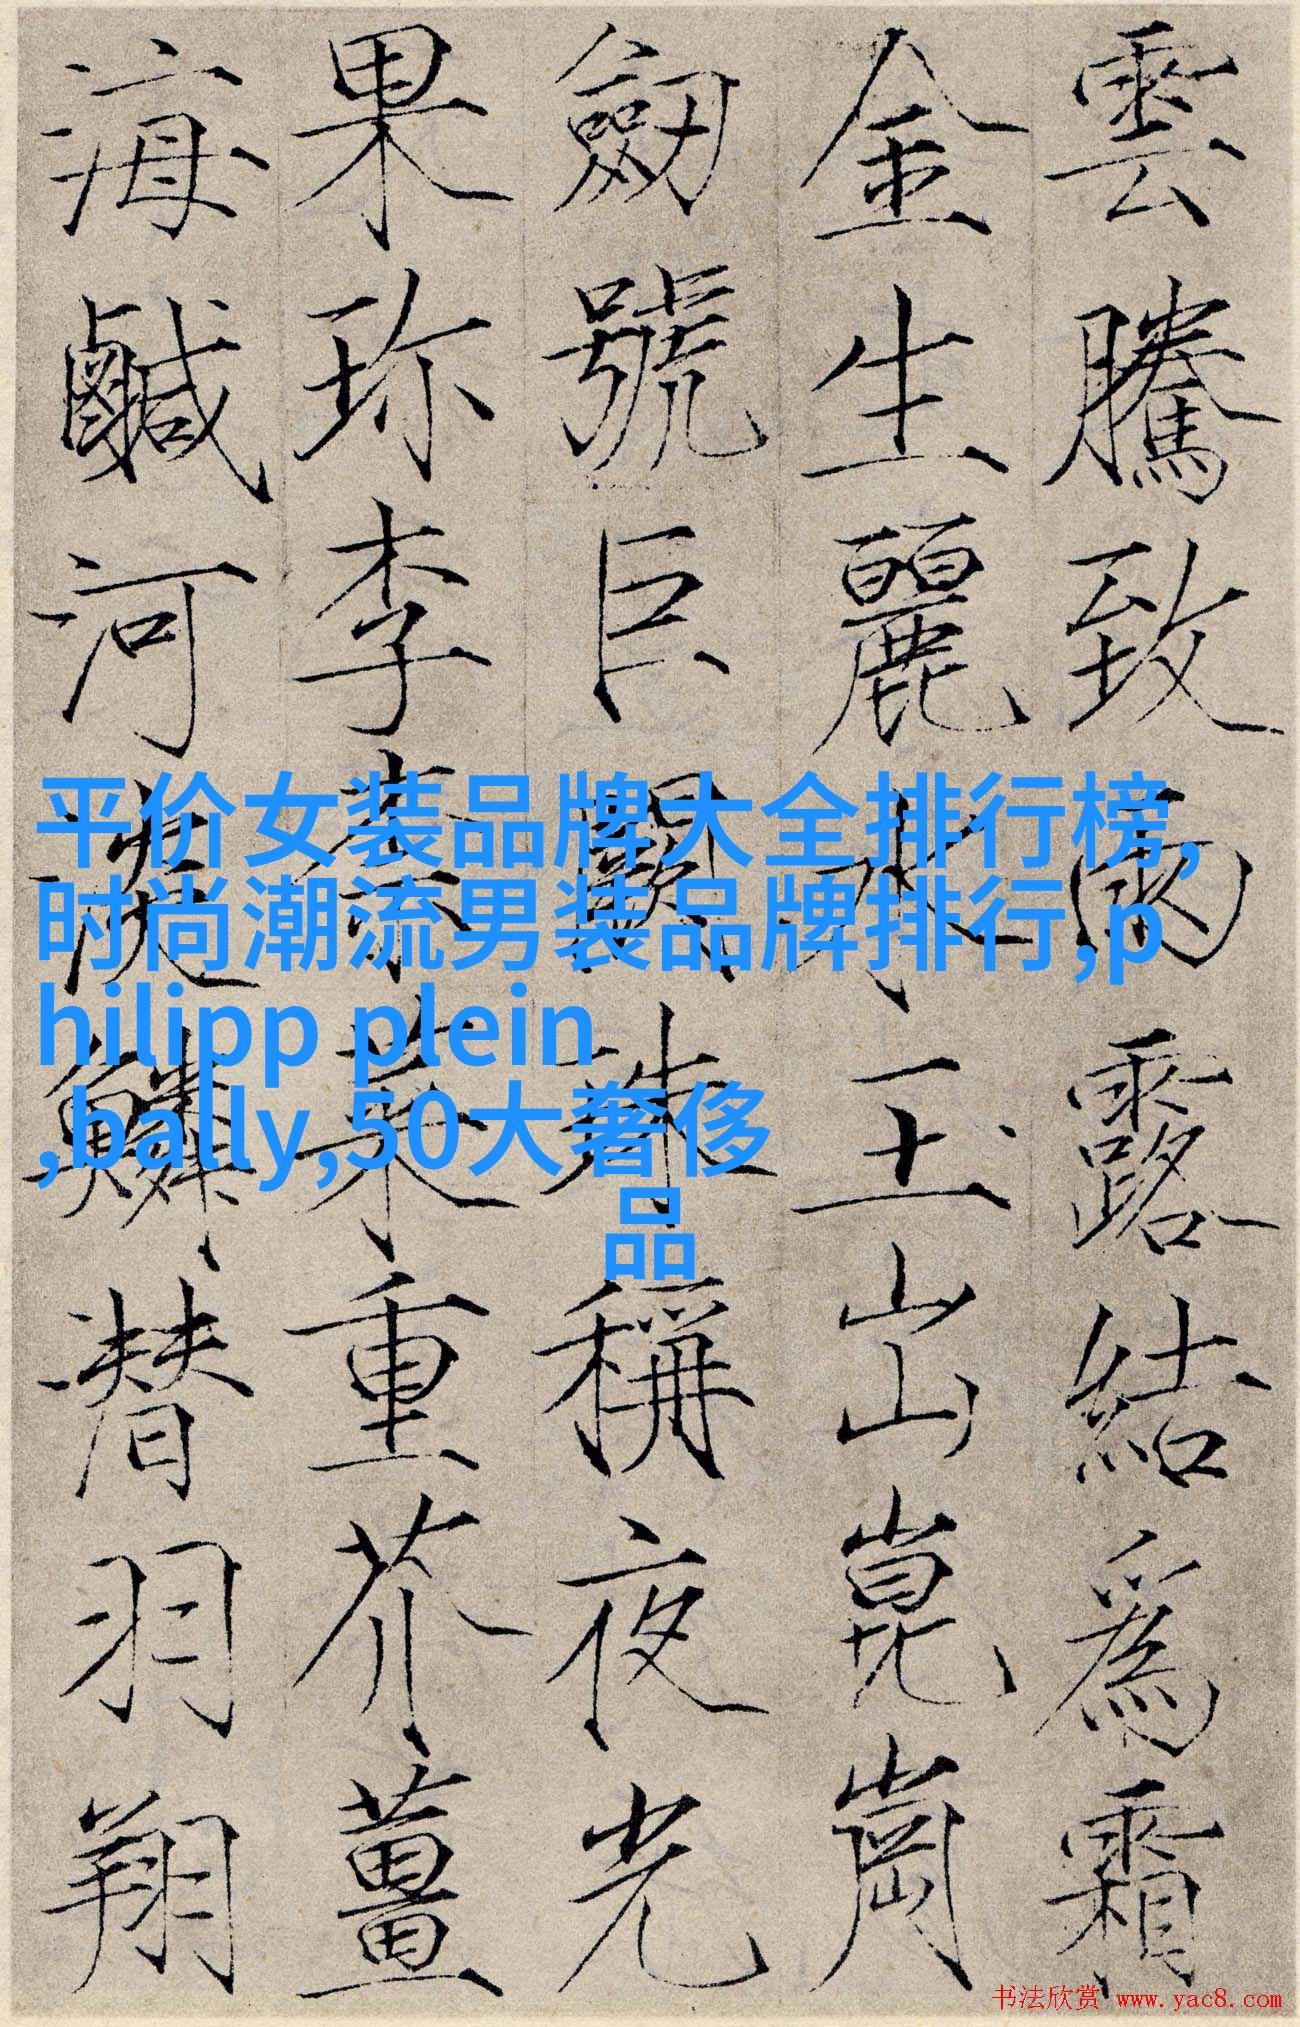 雲騰致雨露結爲霜
金生麗水玉出崑崗
劒號巨闕珠稱夜光
果珎李柰菜重芥薑
海鹹河淡鱗潜羽翔
平价女装品牌大全排行榜,
时尚潮流男装品牌排行,p
hilipp plein
,bally,50大奢侈
品
书法欣赏 www.yac8.com